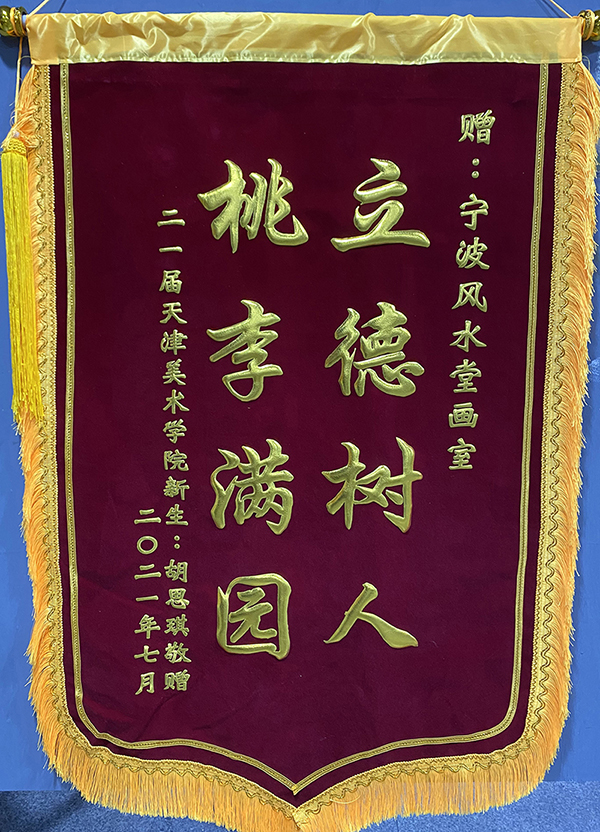 赠：宁波风水堂画室
立德树人
桃李满园
二一届天津美术学院新生：胡思琪敬赠
二〇二一年七月